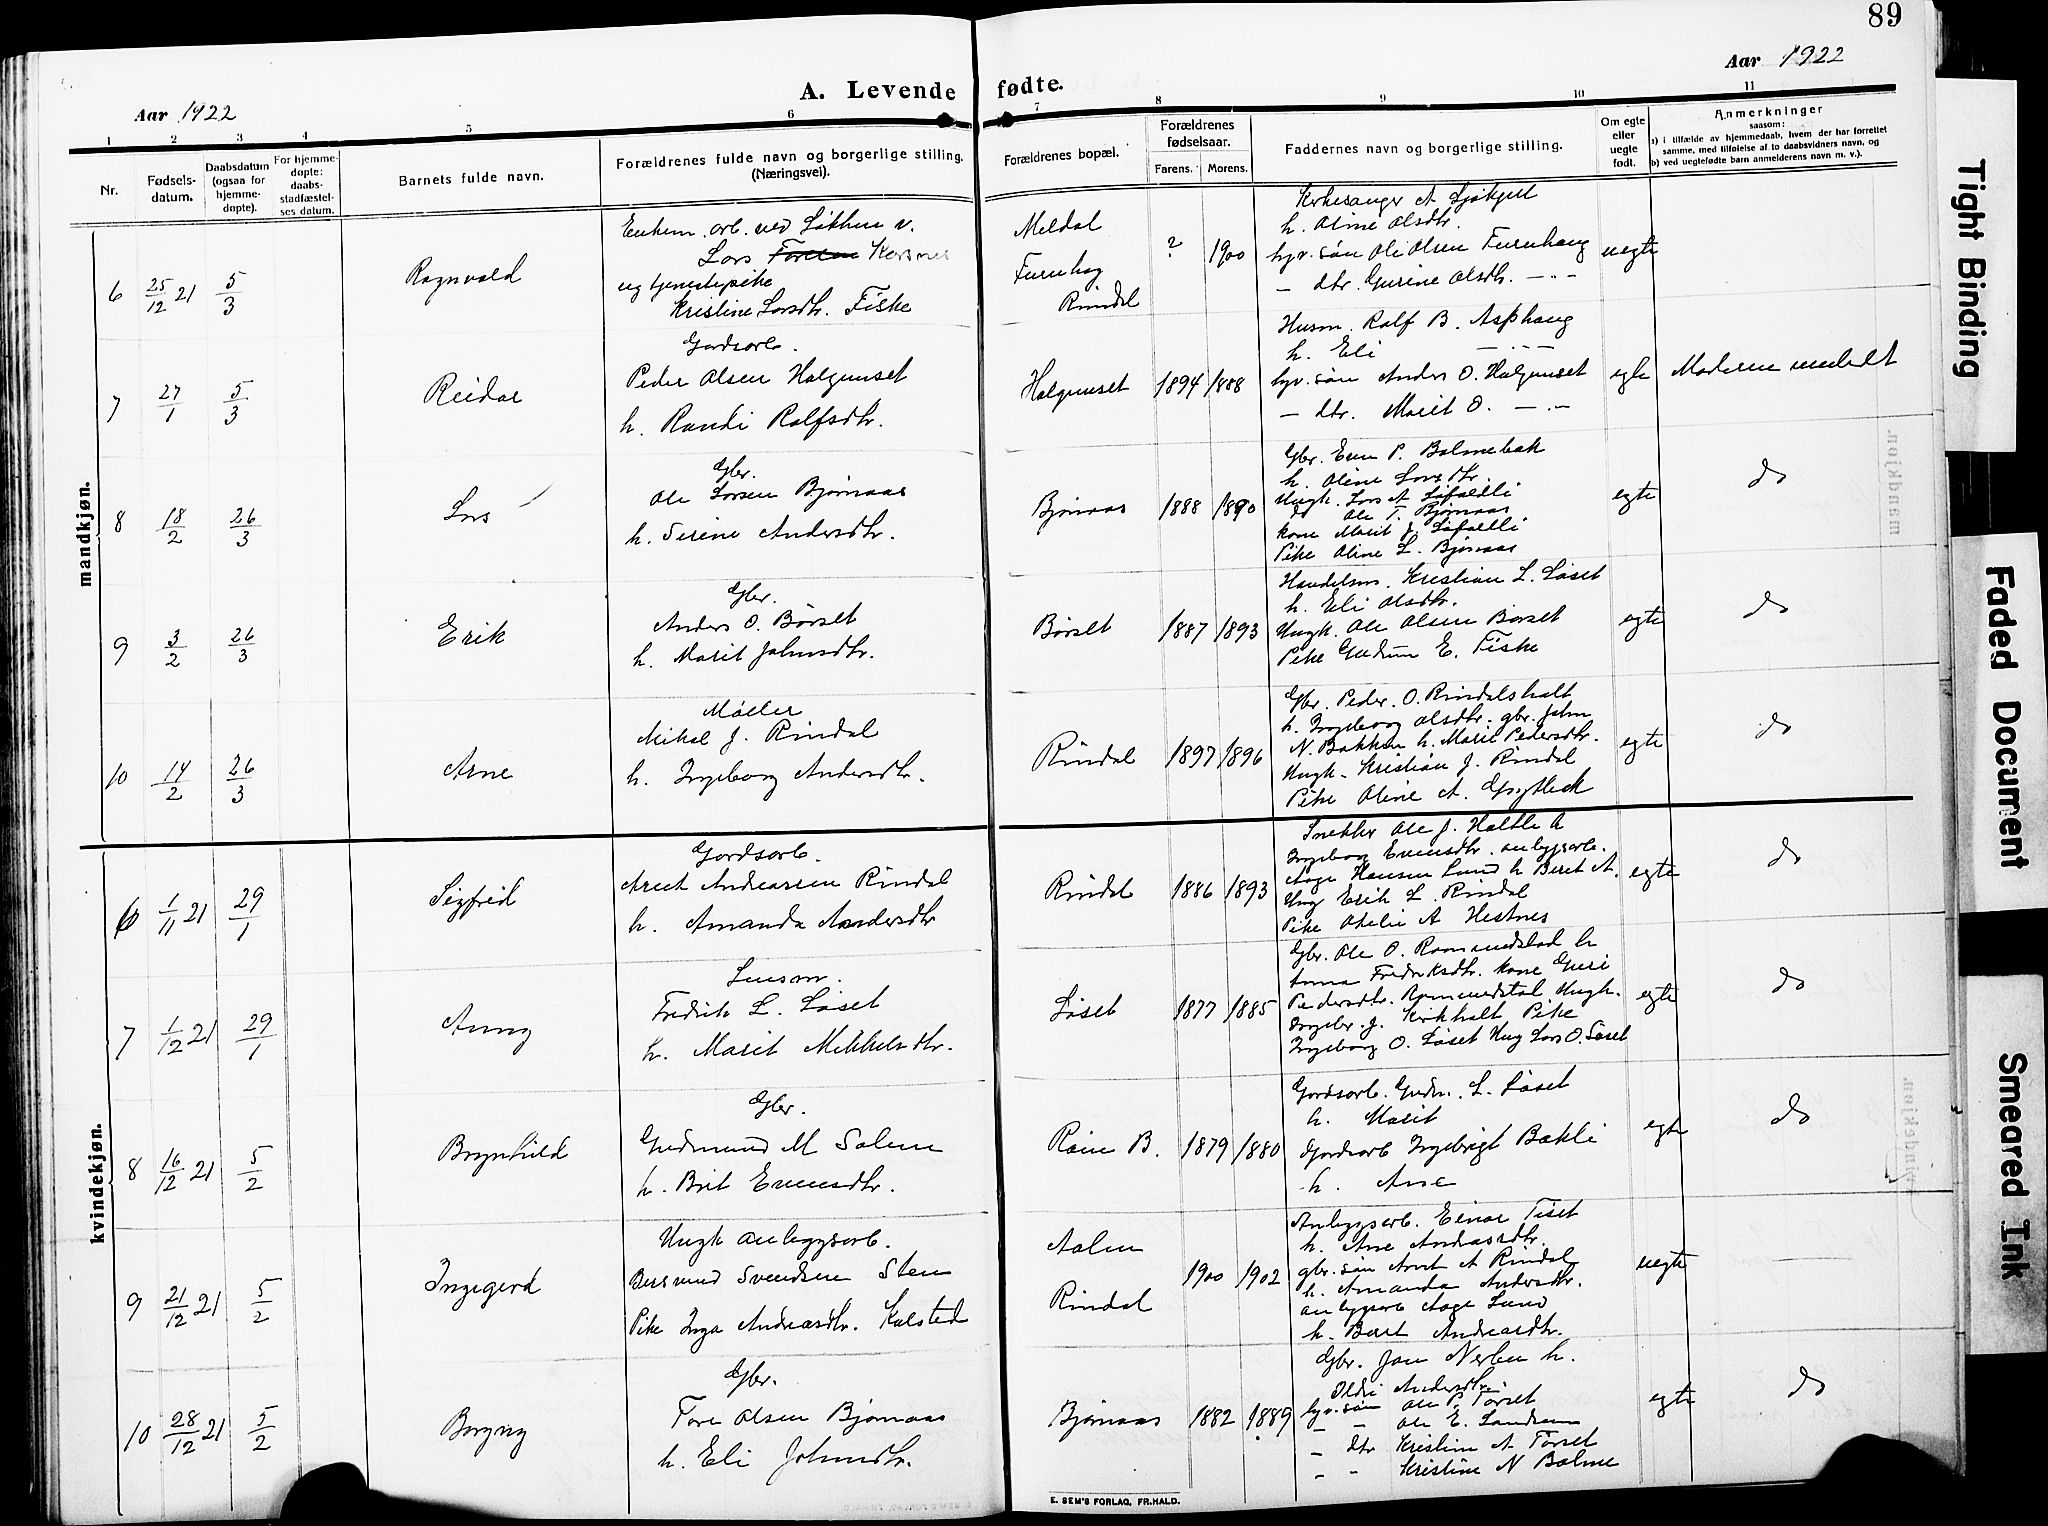 89
Aar 1922
Aar 1922
A. Levende fødte.
1 2 3 4 5 6 7 8 9 10 11
Nr.
Fødsels-
datum.
Daabsdatum
(ogsaa for
hjemme-
døpte).
For hjemme-
døpte:
daabs-
stadfæstel-
ses datum.
Barnets fulde navn.
Forældrenes fulde navn og borgerlige stilling.
(Næringsvei).
Forældrenes bopæl.
Forældrenes
fødselsaar.
Farens. Morens.
Faddernes navn og borgerlige stilling.
Om egte
eller
uegte
født.
Anmerkninger
saasom:
a) i tilfælde av hjemmedaab, hvem der har forrettet
samme, med tilføielse af to daabsvidners navn, og
b) ved uegtefødte barn anmelderens navn m. v.).
mandkjøn.
6 25/12 21 5/3
Ragnvald
Lars Kersnes
og tjenestepike
Kristine Larsdtr. Fiske
Meldal
Furuhog
Rindal
? 1900
Kirkesanger A
h. Oline Olsdtr.
hjv. søn Ole Olsen Furuhaug
— dtr. Gurine Olsdtr. — . —
uegte
7 27/1 5/3
Reidar
Gardsarb.
Peder Olsen Halgunset
h. Randi Rolfsdtr.
Halgunset
1894 1888
Husm. Rolf B. Asphaug
h. Eli — . . —
hjv. søn Anders O. Halgunset
— dtr. Marit O. — . —
egte
Moderen meldt
8 18/2 26/3
Lars
Gbr.
Ole Larsen Bjørnaas
h. Serine Andersdtr.
Bjørnaas
1888 1890
Gbr. Even P. Bolmebak
h. Oline Larsdtr.
Ungk. Lars A Løfaldli
do Ole T. Bjørnaas
Kone Marit J. Løfaldli
Pike Oline L. Bjørnaas
egte
do
9 3/2 26/3
Erik
Gbr.
Anders O. Børset
h. Marit Johnsdtr.
Børset
1887 1893
Handelsm. Kristian L. Løset
h. Eli Olsdtr.
Ungk. Ole Olsen Børset
Pike Gudrun E. Fiske
egte
do
10 14/2 26/3
Arne
Møller
Mikal J. Rindal
h. Ingeborg Andersdtr.
Rindal
1897 1896
Gbr. Peder O. Rindalsholt
h. Ingeborg Olsdtr. gbr. John
N. Bakken h. Marit Pedersdtr.
Ungk. Kristian J. Rindal
Pike Oline A.
egte
do
kvindekjøn.
6 1/11 21 29/1
Sigfrid
Gardsarb.
Arnt Andreassen Rindal
h. Amanda Andersdtr
Rindal
1886 1893
Snekker Ole J. Holtle h
Ingeborg Evensdtr. anlegsarb.
Aage Hansen Lund h Beret A.
Ung Erik L. Rindal
Pike Otelie A Hestnes
egte
do
7 1/12 21 29/1
Anny
Husm.
Fredrik L. Løset
h. Marit Mikkelsdtr.
Løset
1877 1885
Gbr. Ole O. Romundstad h
Anna Fredriksdtr. Kone Guri
Pedersdtr. Romundstad. Ungk.
Ingebr. J. Kirkholt Pike
Ingeborg O. Løset Ung Lars O. Løset
egte
do
8 16/12 21 5/2
Brynhild
Gbr.
Gudmund M Solem
h. Brit Evensdtr.
B.
1879 1880
Gardsarb. Gudm. L. Løset
h. Marit
Gardsarb Ingebrigt Bakli
h. Ane
egte
do
9 21/12 21 5/2
Ingegerd
Ungk anlegsarb.
Bersvend Svendsen Sten
Pike Inga Andreasdtr. Kalstad
Aalen
Rindal
1900 1902
Anlegsarb. Einar Tiset
h. Ane Andreasdtr.
gbr. søn Arnt A Rindal
h. Amanda Andersdtr.
anlegsarb Aage Lund
h. Beret Andreasdtr.
uegte
10 28/12 21 5/2
Borgny
Gbr.
Tore Olsen Bjørnaas
h. Eli Johnsdtr.
Bjørnaas
1882 1889
Gbr. Jon Nerlien h.
Oldri Andersdtr.
hjv. søn Ole P. Tørset
— - Ole E. Landsem
— dtr Kristine A Tørset
— - Kristine N Bolme
egte
do
E. SEM'S FORLAG, FR.HALD.
mandkjøn.
kvindekjøn.
Tight Binding
Faded Document
Smeared Ink